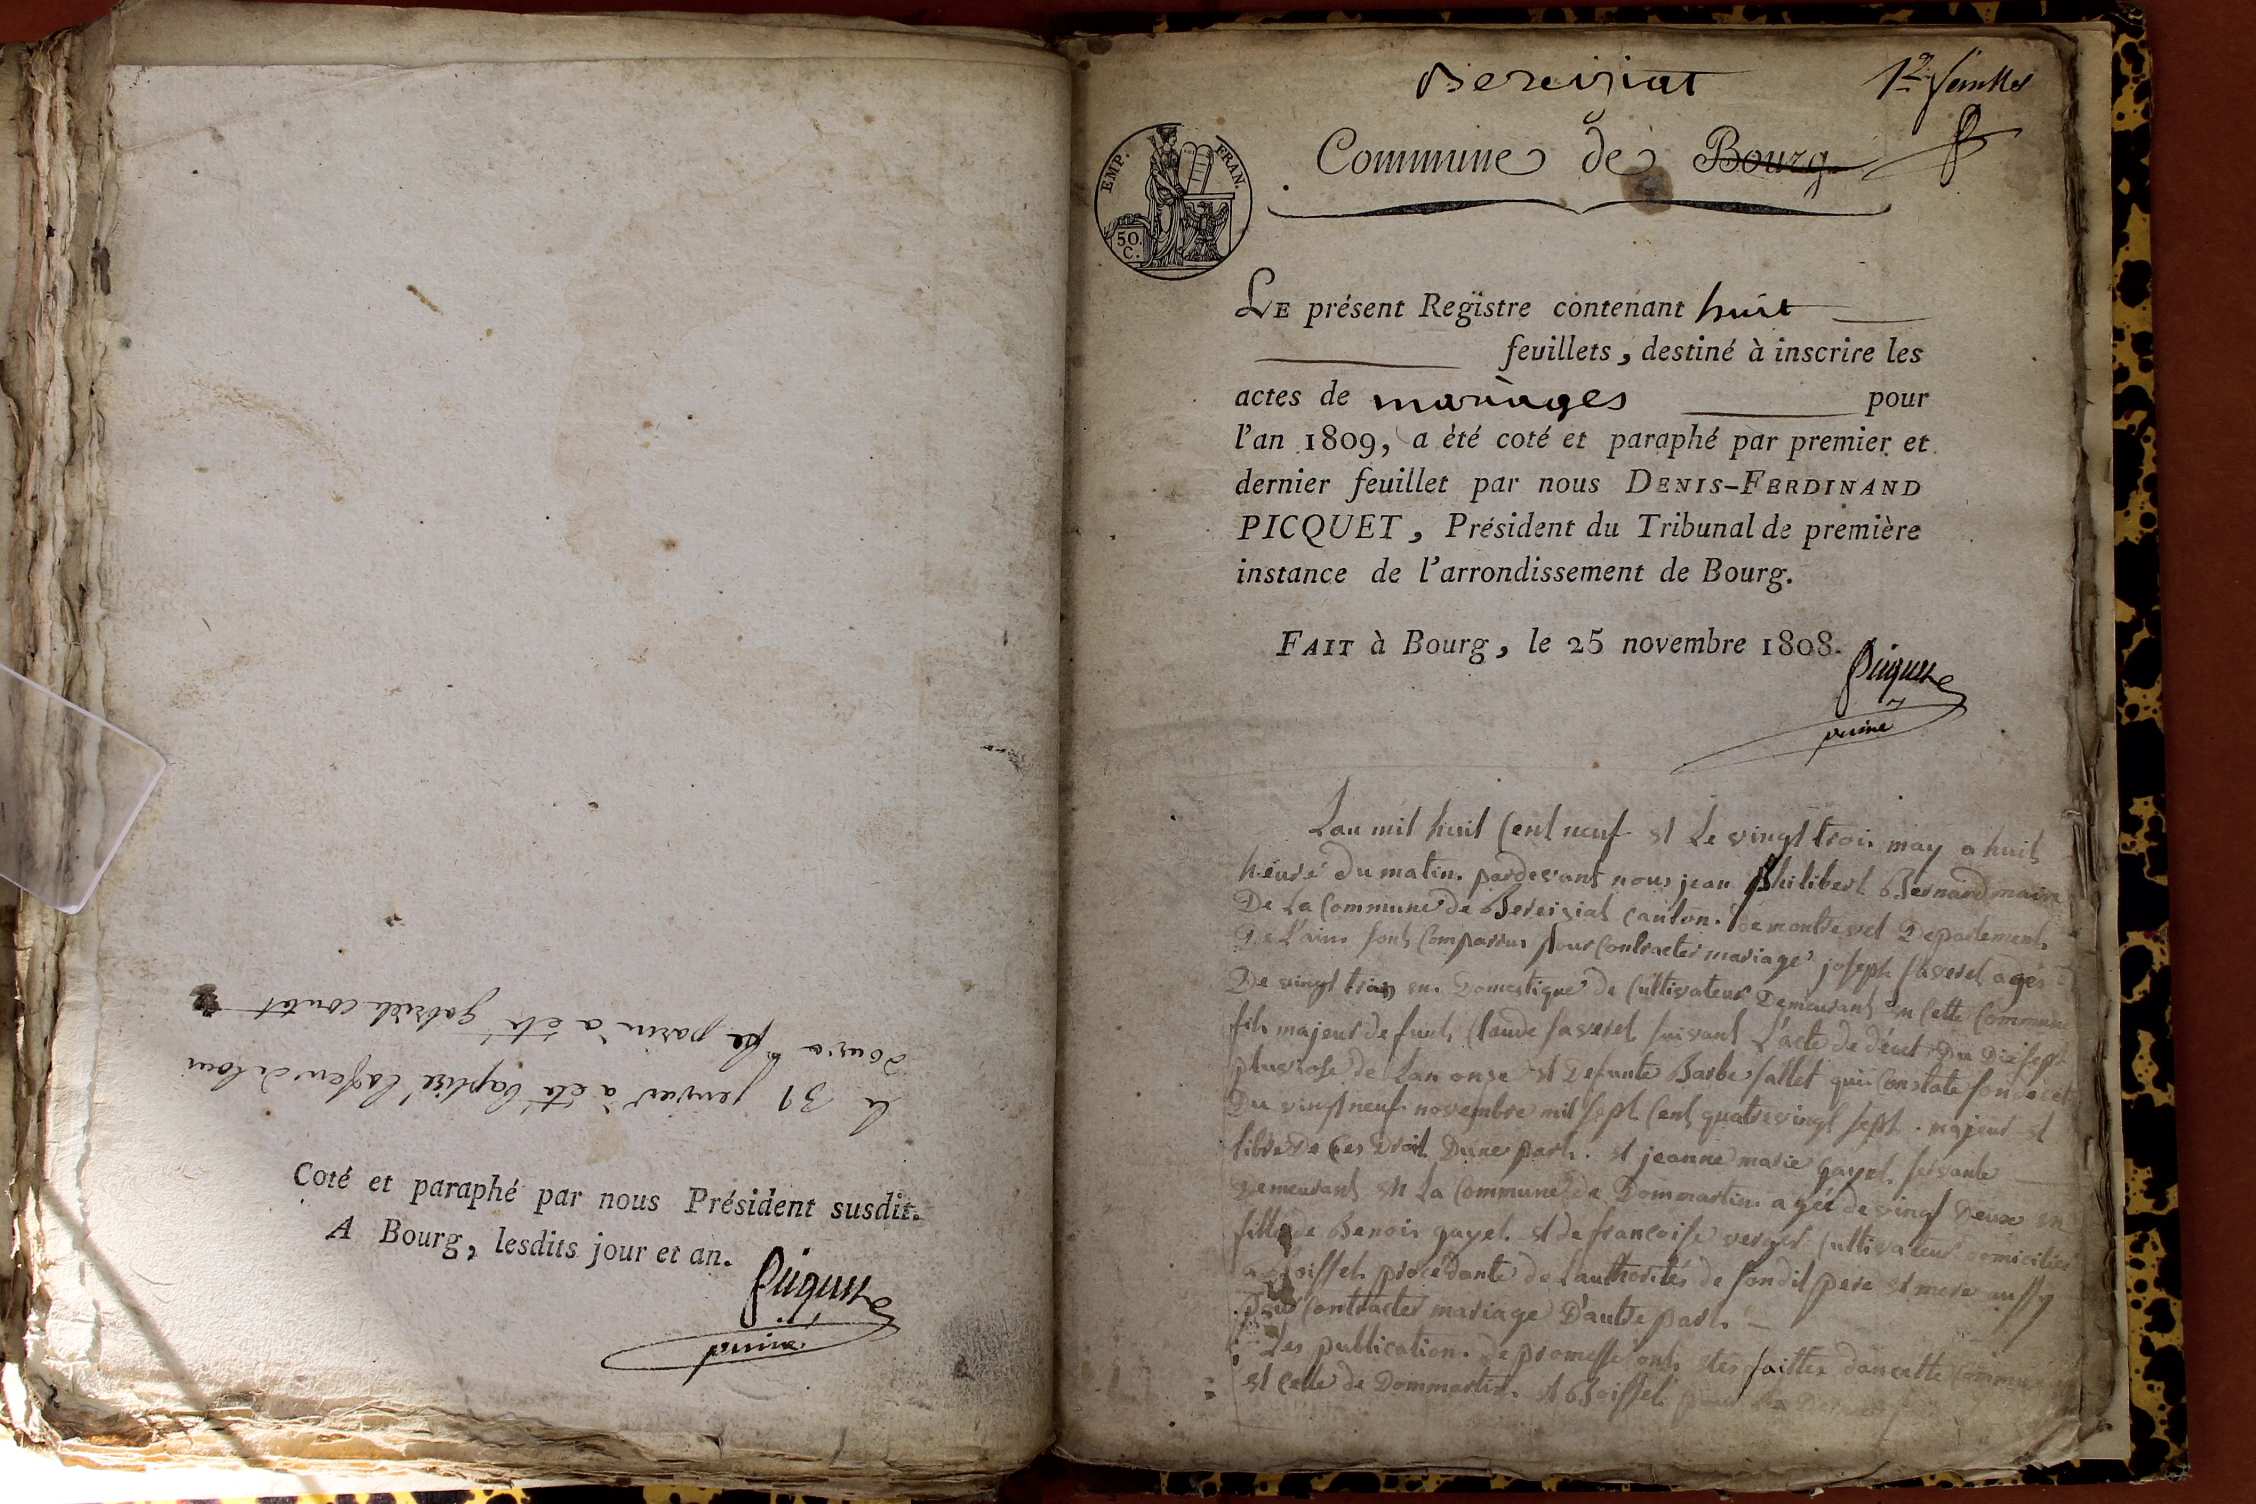 le 31 janvier a été baptisé
le parin a été gabriel
Coté et paraphé par nous Président susdit.
A Bourg, lesdits jour et an.
Picquet
Bereiziat
1er feuillet
EMP. FRAN.
50 C.
Commune de Bourg
LE présent Registre contenant huit
feuillets, destiné à inscrire les
actes de mariages pour
l'an 1809, a été coté et paraphé par premier et
dernier feuillet par nous DENIS-FERDINAND
PICQUET, Président du Tribunal de première
instance de l'arrondissement de Bourg.
FAIT à Bourg, le 25 novembre 1808.
Picquet
Lan mil huit Cent neuf et Le vingt troi may a huit
heure du matin pardevant nous jean philibert Bernard maire
De La Commune de Bereiziat canton de montrevel Departement
De Lain sont Comparus pour contracter mariage joseph favrel agés
De vingt trois an Domestique de Cultivateur Demeurant en Cette Commune
fils majeur de funt Claude favrel suivant L'acte de décet Du Dix sept
pluviose de Lan onze et Defunte Barbe fallet qui Constate son décet
Du vingt neuf novembre mil sept Cent quatrevingt sept majeur et
libre de Ces Droit Dune part et jeanne marie gayet servante
Demeurant en La Commune de Dommartin agée de vingt Deux an
fille de Benoi gayet et de francoise verget Cultivateur Domiciliés
a Boissel procédante de Lauthorités de son dit pere et mere aussy
pour Contracter mariage D'autre part
Les publication de promesse ont étés faittes dan cette Commune
et Celle de Dommartin et Boissel pour La